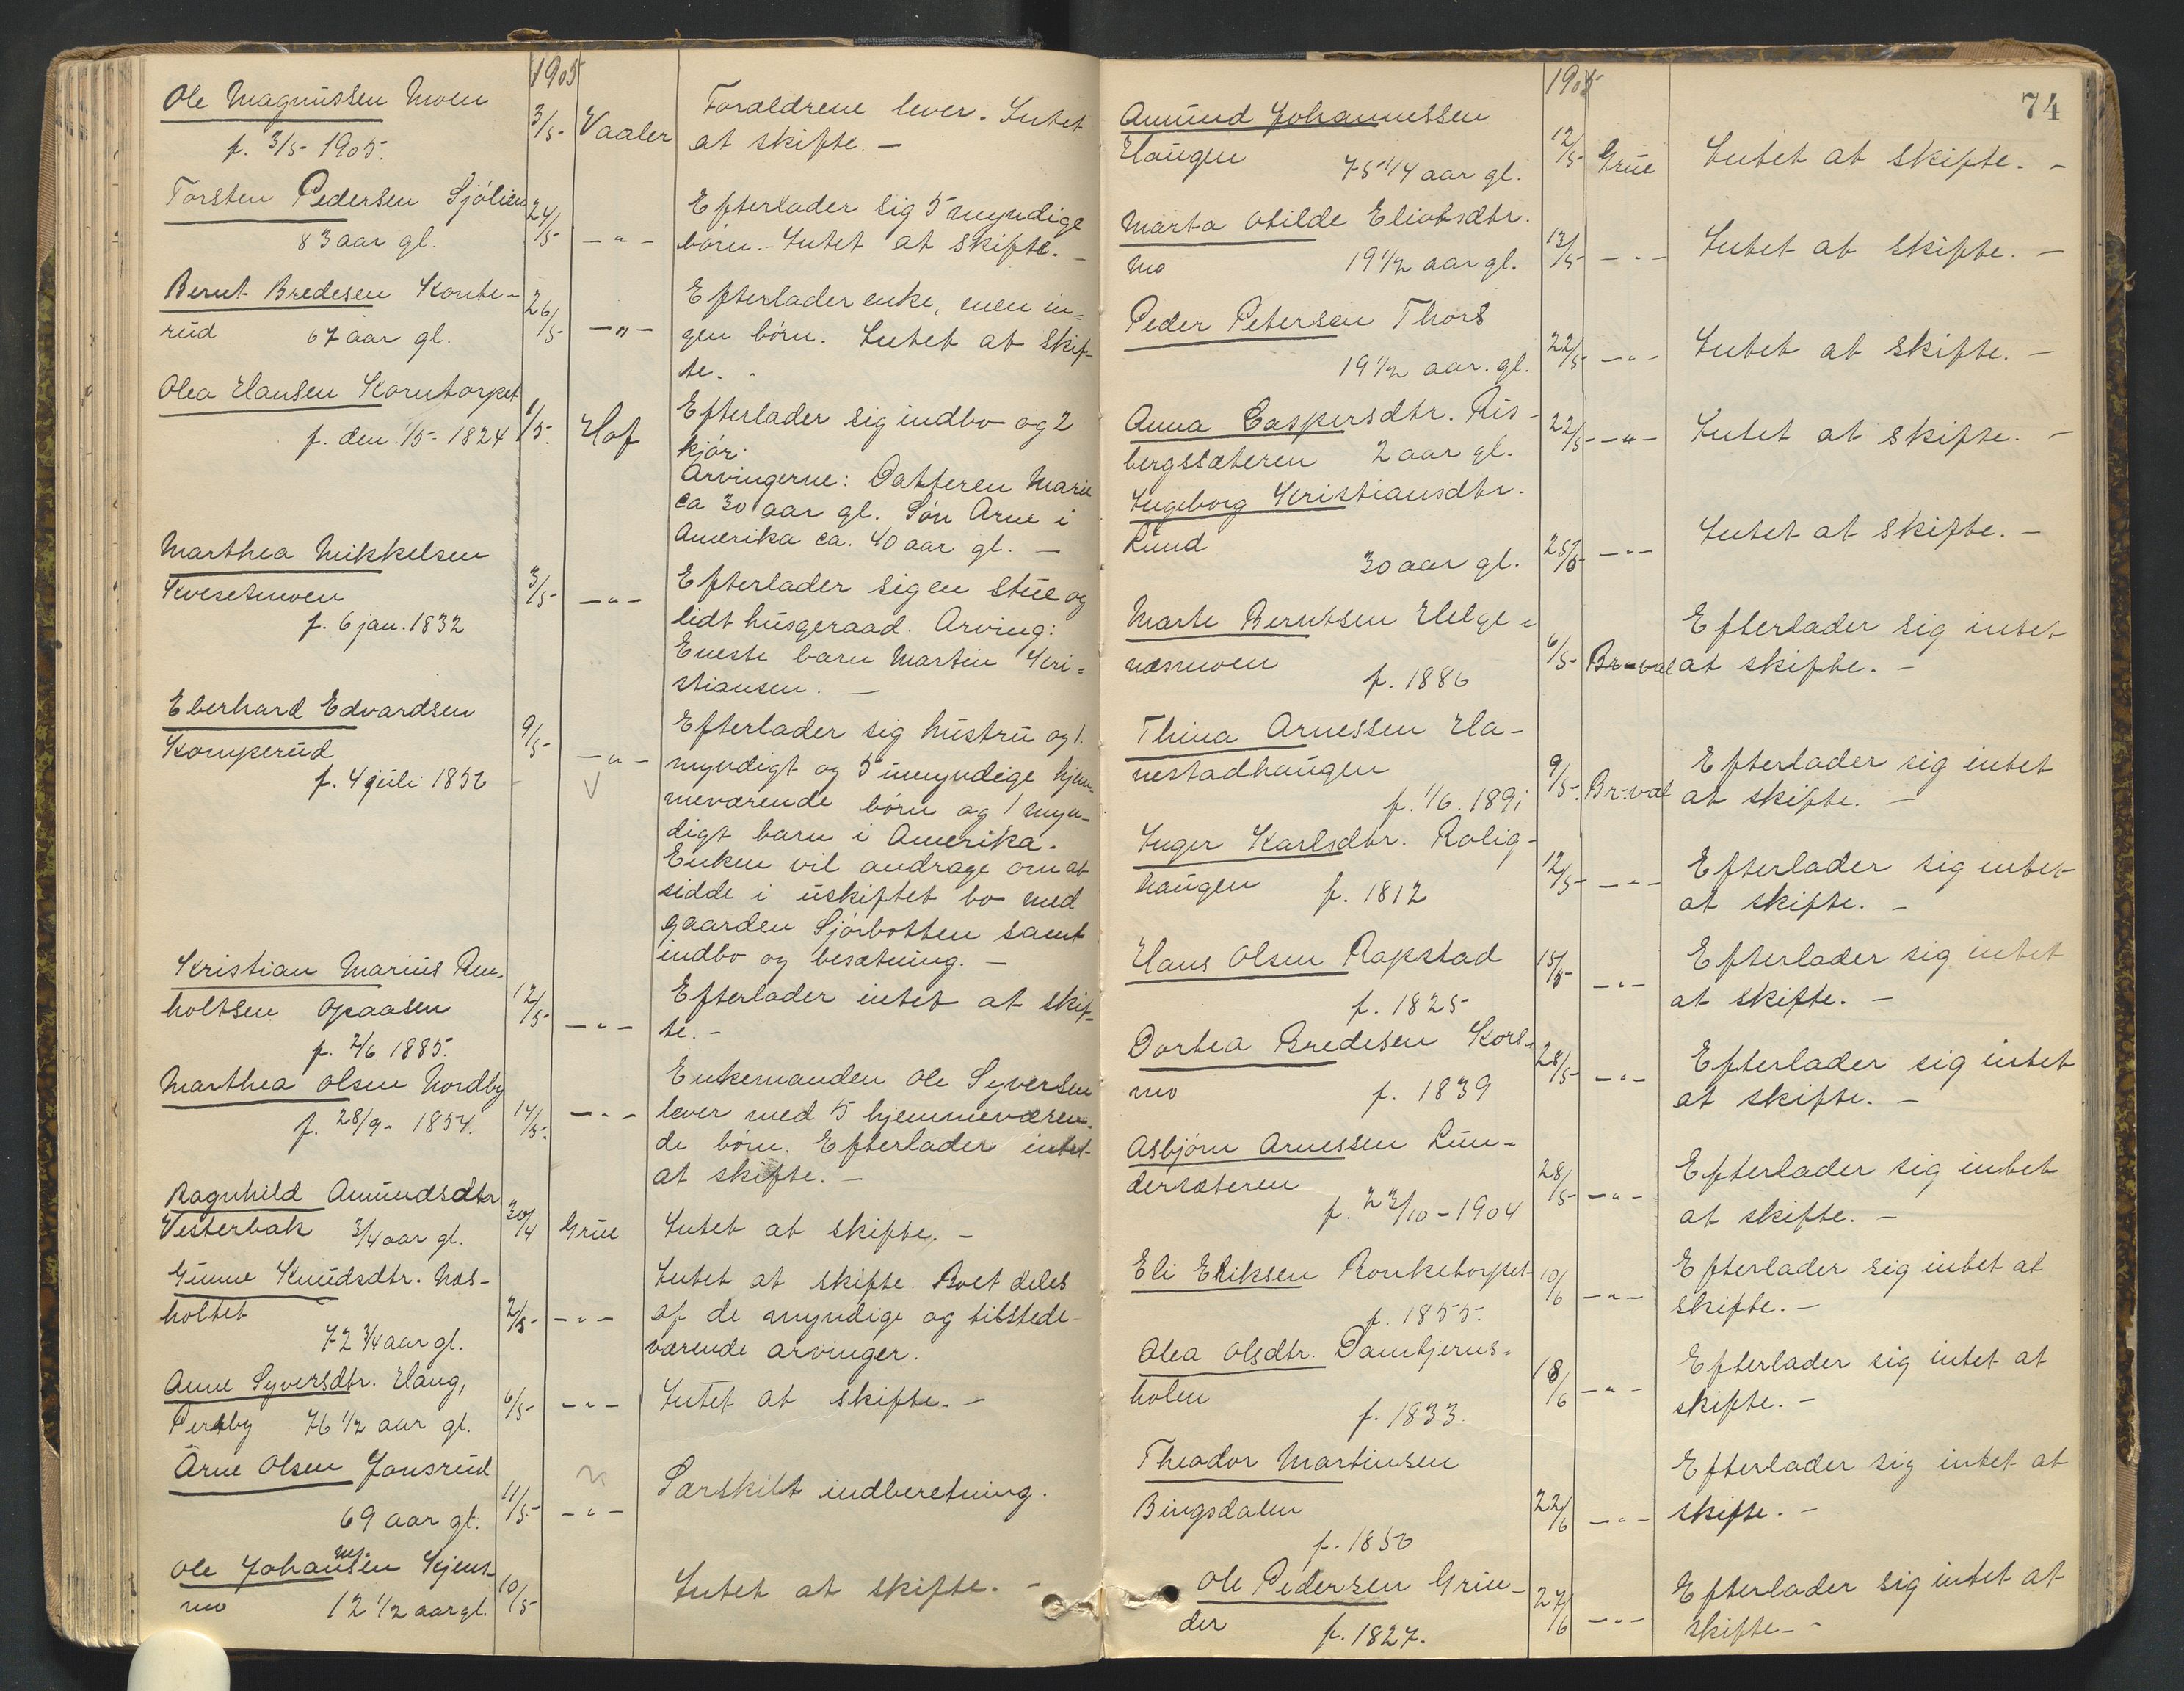 1905
Ole Magnussen Moen
f. 3/5 1905.
3/5 Vaaler
Forældrene lever. Intet
at skifte. -
Torsten Pedersen Sjölien
83 aar gl.
24/5 - " -
Efterlader sig 5 myndige
börn. Intet at skifte. -
Bernt Bredesen Konte-
rud 67 aar gl.
26/5 - " -
Efterlader enke, men in-
gen börn. Intet at skif-
te. -
Olea Hansen Korntorpet
f. den 1/5 1824
1/5. Hof
Efterlader sig indbo og 2
kjör.
Arvingerne: Datteren Marie
ca 30 aar gl. Sön Arne i
Amerika ca. 40 aar gl. -
Marthea Mikkelsen
Kvesetmoen
f. 6 jan. 1832
3/5 - " -
Efterlader sig en stue og
lidt husgeraad. Arving:
Eneste barn Martin Kri-
stiansen. -
Eberhard Edvardsen
Komperud
f. 4 juli 1852
9/5 - " -
Efterlader sig hustru og 1
myndigt og 5 umyndige hjem-
meværende börn og 1 myn-
digt barn i Amerika.
Enken vil andrage om at
sidde i uskiftet bo med
gaarden Sjörbotten samt
indbo og besætning. -
Kristian Marius Ren-
holtsen Opaasen
f. 2/6 1885.
12/5 - " -
Efterlader intet at skif-
te. -
Marthea Olsen Nordby
f. 28/9 1854.
14/5. - " -
Enkemanden Ole Syversen
lever med 5 hjemmeværen-
de börn. Efterlader intet
at skifte. -
Ragnhild Amundsdtr
Vesterbak 3/4 aar gl.
30/4 Grue
Intet at skifte. -
Gunne Knudsdtr. Næs-
holtet
72 3/4 aar gl.
2/5 - " -
Intet at skifte. Boet deles
af de myndige og tilstede-
værende arvinger.
Anne Syversdtr. Haug,
Persby 76 1/2 aar gl.
6/5 - " -
Intet at skifte. -
Arne Olsen Jonsrud
69 aar gl.
11/5 - " -
Særskilt indberetning.
Ole Johannessen Kjens-
mo 12 1/2 aar gl.
10/5
Intet at skifte. -
74
1905
Amund Johannessen
Haugen 75 1/4 aar gl.
12/5 Grue
Intet at skifte. -
Marta Otilde Eliotsdtr.
Mo 19 1/2 aar gl.
13/5 - " -
Intet at skifte. -
Peder Petersen Thors
19 1/2 aar. gl.
22/5 - " -
Intet at skifte. -
Anna Caspersdtr. Ris-
bergsæteren 2 aar gl.
22/5 - " -
Intet at skifte. -
Ingeborg Kristiansdtr.
Lund 30 aar gl.
25/5 - " -
Intet at skifte. -
Marte Berntsen Helge-
næsmoen f. 1886
6/5 Br-val
Efterlader sig intet
at skifte. -
Thina Arnessen Ha-
nestadhaugen
f. 1/6. 1891
9/5. Br.val
Efterlader sig intet
at skifte. -
Inger Karlsdtr. Rolig-
haugen f. 1812
12/5 - " -
Efterlader sig intet
at skifte. -
Hans Olsen Rapstad
f. 1825
15/5 - " -
Efterlader sig intet
at skifte. -
Dortea Bredesen Kors-
mo f. 1839
28/5 - " -
Efterlader sig intet
at skifte. -
Asbjörn Arnessen Lun-
dersæteren
f. 23/10 - 1904
28/5 - " -
Efterlader sig intet
at skifte. -
Eli Eriksen Ronketorpet
f. 1855.
10/6 - " -
Efterlader sig intet at
skifte. -
Olea Olsdtr. Damtjerns-
holen
f. 1833.
18/6 - " -
Efterlader sig intet at
skifte. -
Theodor Martinsen
Bingsdalen
f. 1850
22/6 - " -
Efterlader sig intet at
skifte. -
Ole Pedersen Grün-
der f. 1827.
27/6 - " -
Efterlader sig intet at
skifte. -